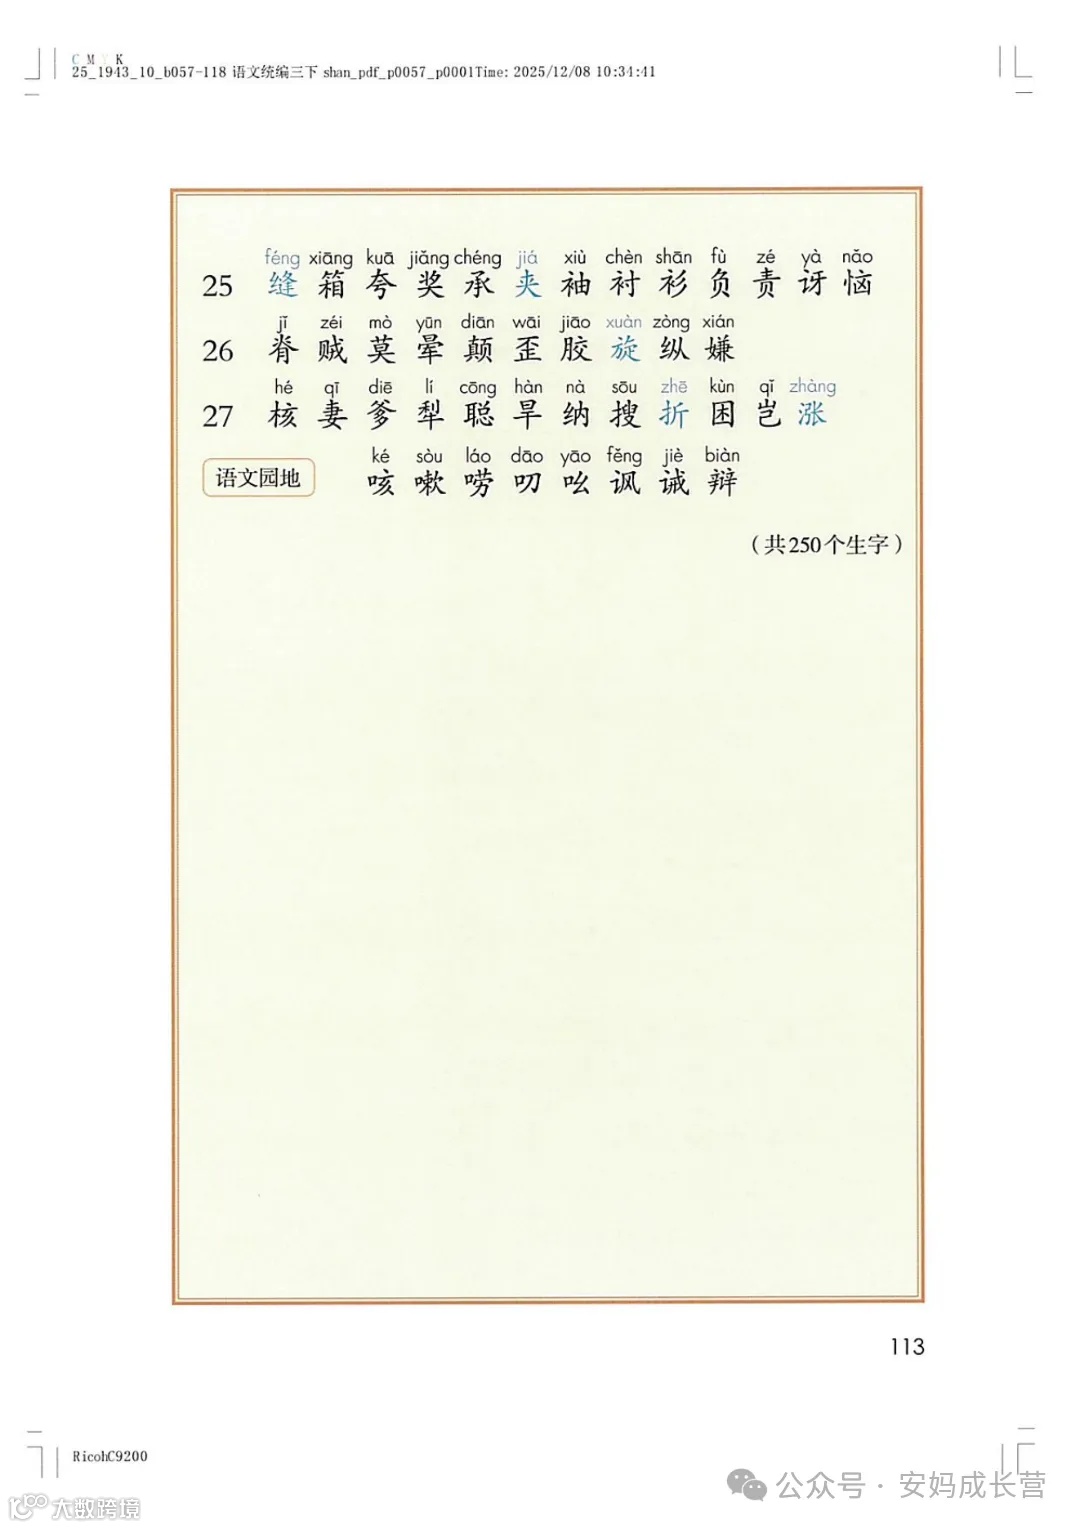 C M Y K
25_1943_10_b057-118 语文统编三下 shan_pdf_p0057_p0001Time: 2025/12/08 10:34:41
féng xiāng kuā jiǎng chéng jiá xiù chèn shān fù zé yà nǎo
25 缝 箱 夸 奖 承 夹 袖 衬 衫 负 责 讶 恼
jǐ zéi mò yūn diān wāi jiāo xuàn zòng xián
26 脊 贼 莫 晕 颠 歪 胶 旋 纵 嫌
hé qī diē lí cōng hàn nà sōu zhē kùn qǐ zhàng
27 核 妻 爹 犁 聪 旱 纳 搜 折 困 岂 涨
ké sòu láo dāo yāo fěng jiè biàn
语文园地 咳 嗽 唠 叨 吆 讽 诫 辩
（共250个生字）
113
RicohC9200
公众号 · 安妈成长营
大数跨境